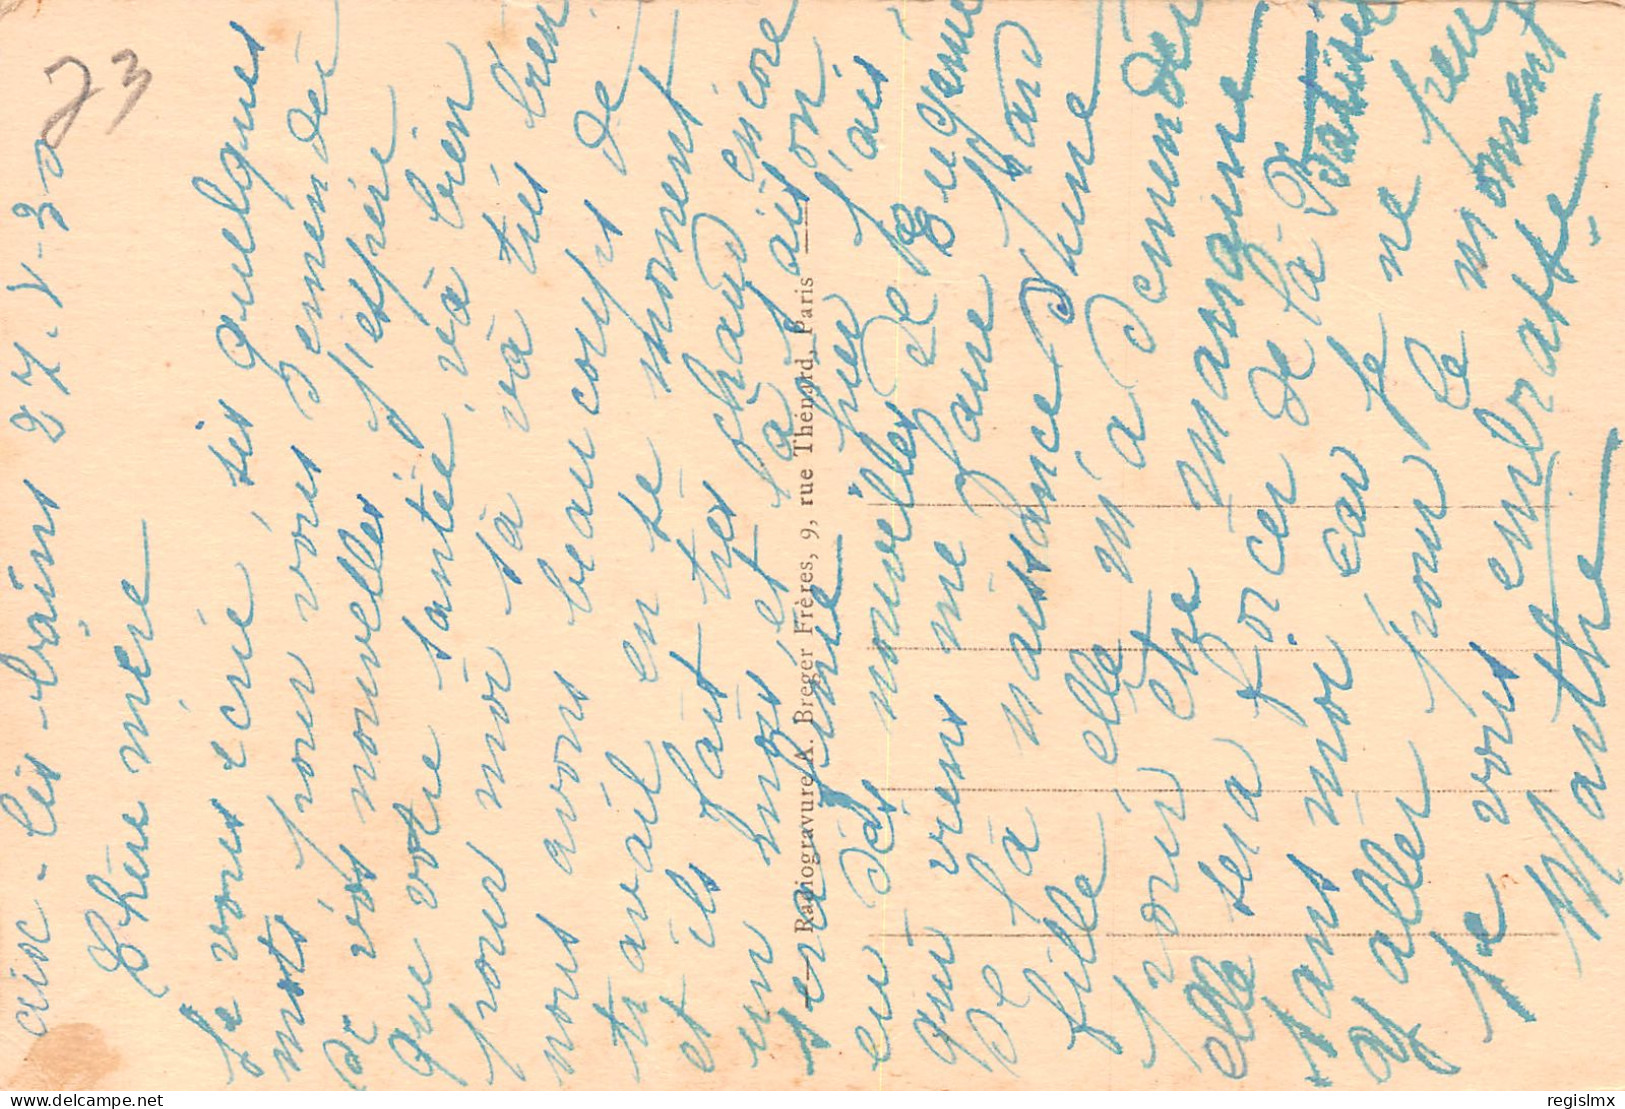 aix-les-bains 27.V-30
73
Chère mère
Je vous écrie, sis quelques
mots pour vous demander
de vos nouvelles j'espère
que votre santée va bien
pour moi sa va très bien
nous avons beaucoups de
travail en se moment
et ils fait très chaud encore
un mois et la saison
sera finie j'ais
eu des nouvelles de Eugenie
qui viens me faire Part
de la naissance d'une
fille elle m'a demender
pour etre maraine
elle sera forcer de la Batiser
sans moi car je ne peu
y aller pour le moment
je vous embrasse
Marthe
Radiogravure A. Breger Frères, 9, rue Thénard, Paris
delcampe.net
regislmx